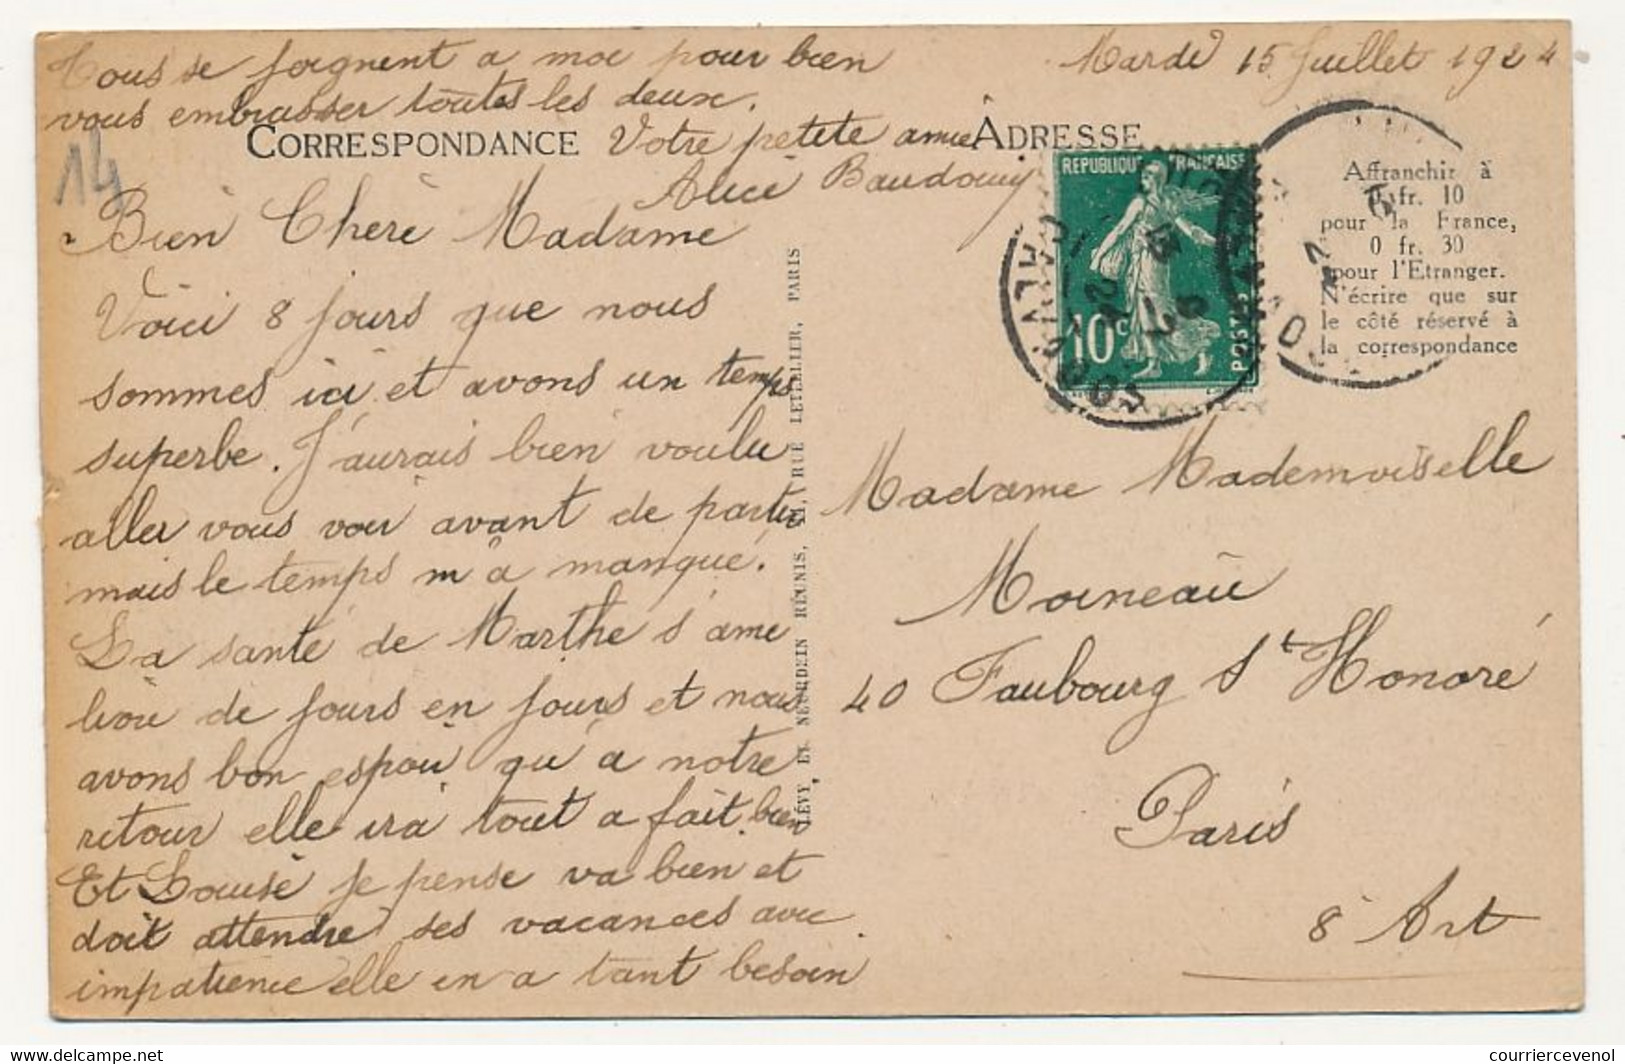 Mardi 15 Juillet 1924
CORRESPONDANCE
ADRESSE
Bien Chère Madame
Voici 8 jours que nous
sommes ici et avons un temps
superbe. J'aurais bien voulu
aller vous voir avant de partir
mais le temps m'a manqué.
La santé de Marthe s'amé
liore de jours en jours et nous
avons bon espoir qu'à notre
retour elle ira tout a fait bien
Et Louise je pense va bien et
doit attendre ses vacances avec
impatience elle en a tant besoin
Tous se joignent a moi pour bien
vous embrasser toutes les deux.
Votre petite amie
Alice Baudouy
14
LÉVY ET NEURDEIN RÉUNIS, RUE LETELLIER, PARIS
REPUBLIQUE FRANÇAISE
10c
POSTES
Affranchir à
0 fr. 10
pour la France,
0 fr. 30
pour l'Etranger.
N'écrire que sur
le côté réservé à
la correspondance
Madame Mademoiselle
Moineau
40 Faubourg St Honoré
Paris
8e Art
courriercevenol
delcampe.net